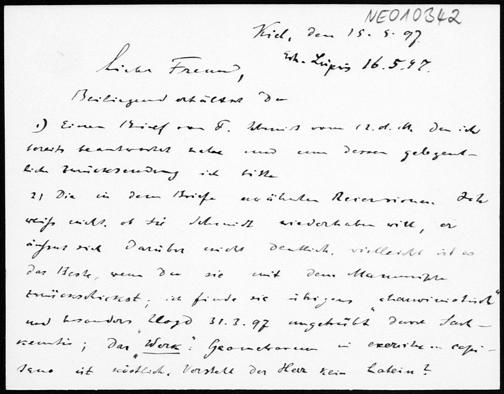 NEO10342
Kiel, den 15.5.97
Leipzig 16.5.97.
Lieber Freund,
Beiliegend erhältst Du
1) Einen Brief von F. Schmidt vom 12. d. M. den ich
bereits beantwortet habe und um dessen gelegent-
liche Zurücksendung ich bitte
2) Die in dem Briefe erwähnten Recensionen. Ich
weiß nicht, ob sie Schmidt wiederhaben will, er
äußert sich darüber nicht deutlich, vielleicht ist es
das Beste, wenn Du sie mit dem Manuskripte
zurückschickst; ich finde sie übrigens "chauvinistisch"
und besonders Lloyd 31.3.97 ungetrübt durch Sach-
kenntnis; das "Werk": Geometrarum in exercitu capi-
taneo ist köstlich. Versteht der Herr kein Latein?